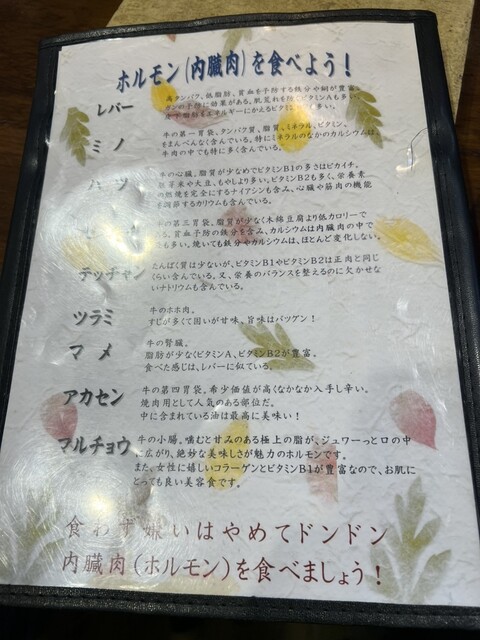 ホルモン(内臓肉)を食べよう！
レバー
高タンパク、低脂肪、貧血を予防する鉄分や銅が豊富。
ガンの予防に効果がある。肌荒れを防ぐビタミンAも多い。
ミノ
牛の第一胃袋、タンパク質、脂質、ミネラル、ビタミン。
をまんべんなく含んでいる。特にミネラルのなかのカルシウムは、
牛肉の中でも特に多く含んでいる。
ハツ
牛の心臓。脂質が少なめでビタミンB1の多さはピカイチ。
胚芽米や大豆、もやしより多い。ビタミンB2も多く、栄養素
の燃焼を完全にするナイアシンも含み、心臓や筋肉の機能
を調節するカリウムも含んでいる。
牛の第三胃袋。脂質が少なく木綿豆腐より低カロリーで
る。貧血予防の鉄分を含み、カルシウムは内臓肉の中で
も多い。焼いても鉄分やカルシウムは、ほとんど変化しない。
テッチャン
たんぱく質は少ないが、ビタミンB1やビタミンB2は正肉と同じ
くらい含んでいる。又、栄養のバランスを整えるのに欠かせな
いナトリウムも含んでいる。
ツラミ
牛のホホ肉。
すじが多くて固いが甘味。旨味はバツゲン！
マメ
牛の腎臓。
脂肪が少なくビタミンA、ビタミンB2が豊富。
食べた感じは、レバーに似ている。
アカセン
牛の第四胃袋。希少価値が高くなかなか入手し辛い。
焼肉用として人気のある部位だ。
中に含まれている油は最高に美味い！
マルチョウ
牛の小腸。噛むと甘みのある極上の脂が、ジュワーっと口の中
に広がり、絶妙な美味しさが魅力のホルモンです。
また、女性に嬉しいコラーゲンとビタミンB1が豊富なので、お肌に
とっても良い美容食です。
食わず嫌いはやめてドンドン
内臓肉(ホルモン)を食べましょう！